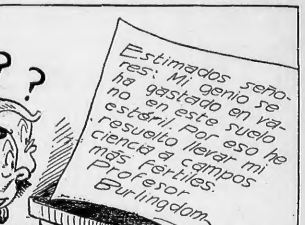 ? ?
Estimados seño-
res: Mi genio se
ha gastado en va-
no en este suelo
estéril. Por eso he
resuelto llevar mi
ciencia a campos
más fértiles.
Profesor
Burlingdom